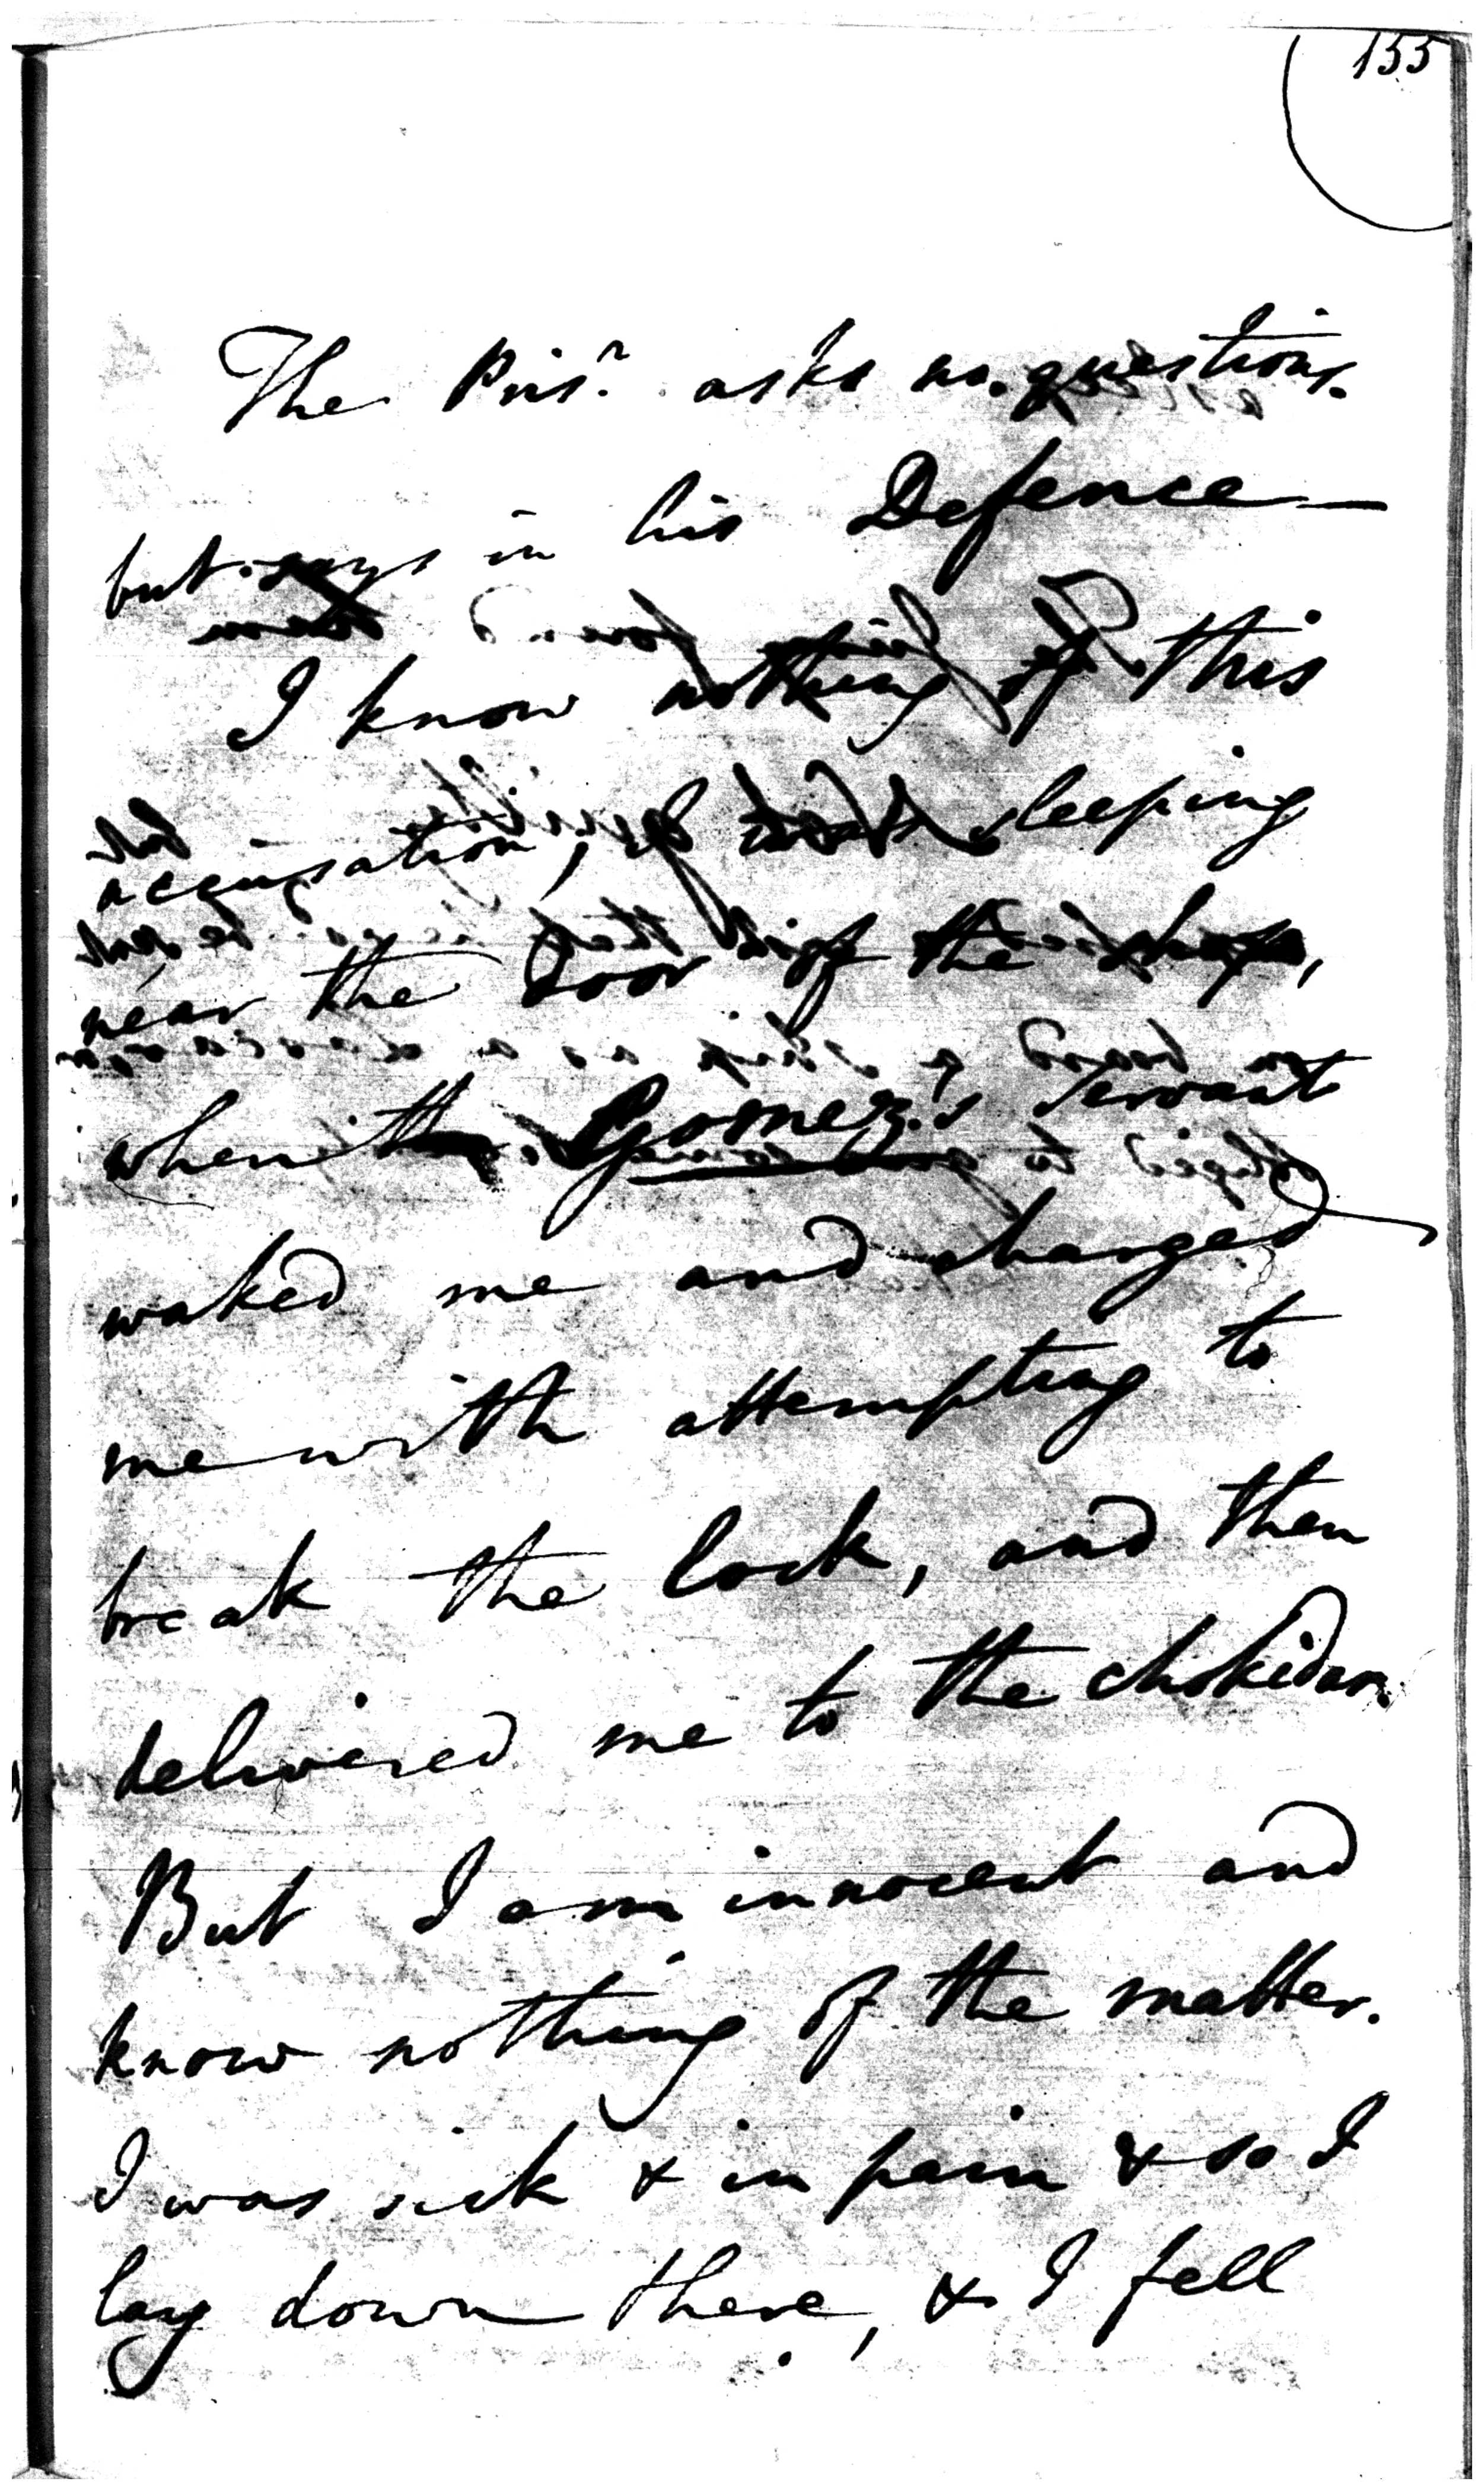 155
The Prisr. asks no questions.
but says in his Defence—
I know nothing of this
accusation, I was sleeping
near the door of the shop,
when Gomez's servant
waked me and charged
me with attempting to
break the lock, and then
delivered me to the chokidar.
But I am innocent and
know nothing of the matter.
I was sick & in pain & so I
lay down there, & I fell